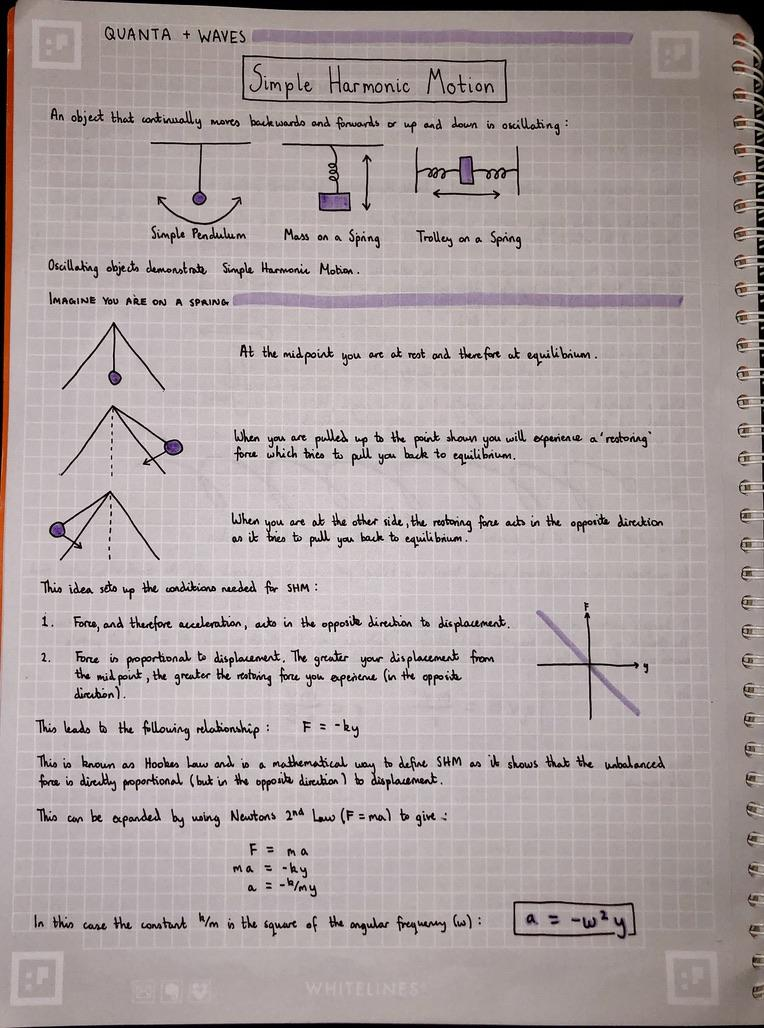 QUANTA + WAVES
Simple Harmonic Motion
An object that continually moves backwards and forwards or up and down is oscillating:
Simple Pendulum
Mass on a Spring
Trolley on a Spring
Oscillating objects demonstrate Simple Harmonic Motion.
IMAGINE YOU ARE ON A SPRING
At the midpoint you are at rest and therefore at equilibrium.
When you are pulled up to the point shown you will experience a 'restoring'
force which tries to pull you back to equilibrium.
When you are at the other side, the restoring force acts in the opposite direction
as it tries to pull you back to equilibrium.
This idea sets up the conditions needed for SHM:
1. Force, and therefore acceleration, acts in the opposite direction to displacement.
2. Force is proportional to displacement. The greater your displacement from
the midpoint, the greater the restoring force you experience (in the opposite
direction).
F
y
This leads to the following relationship: F = -ky
This is known as Hookes Law and is a mathematical way to define SHM as it shows that the unbalanced
force is directly proportional (but in the opposite direction) to displacement.
This can be expanded by using Newtons 2nd Law (F = ma) to give :
F = ma
ma = -ky
a = -k/my
In this case the constant k/m is the square of the angular frequency (ω):
a = -ω²y
WHITELINES®